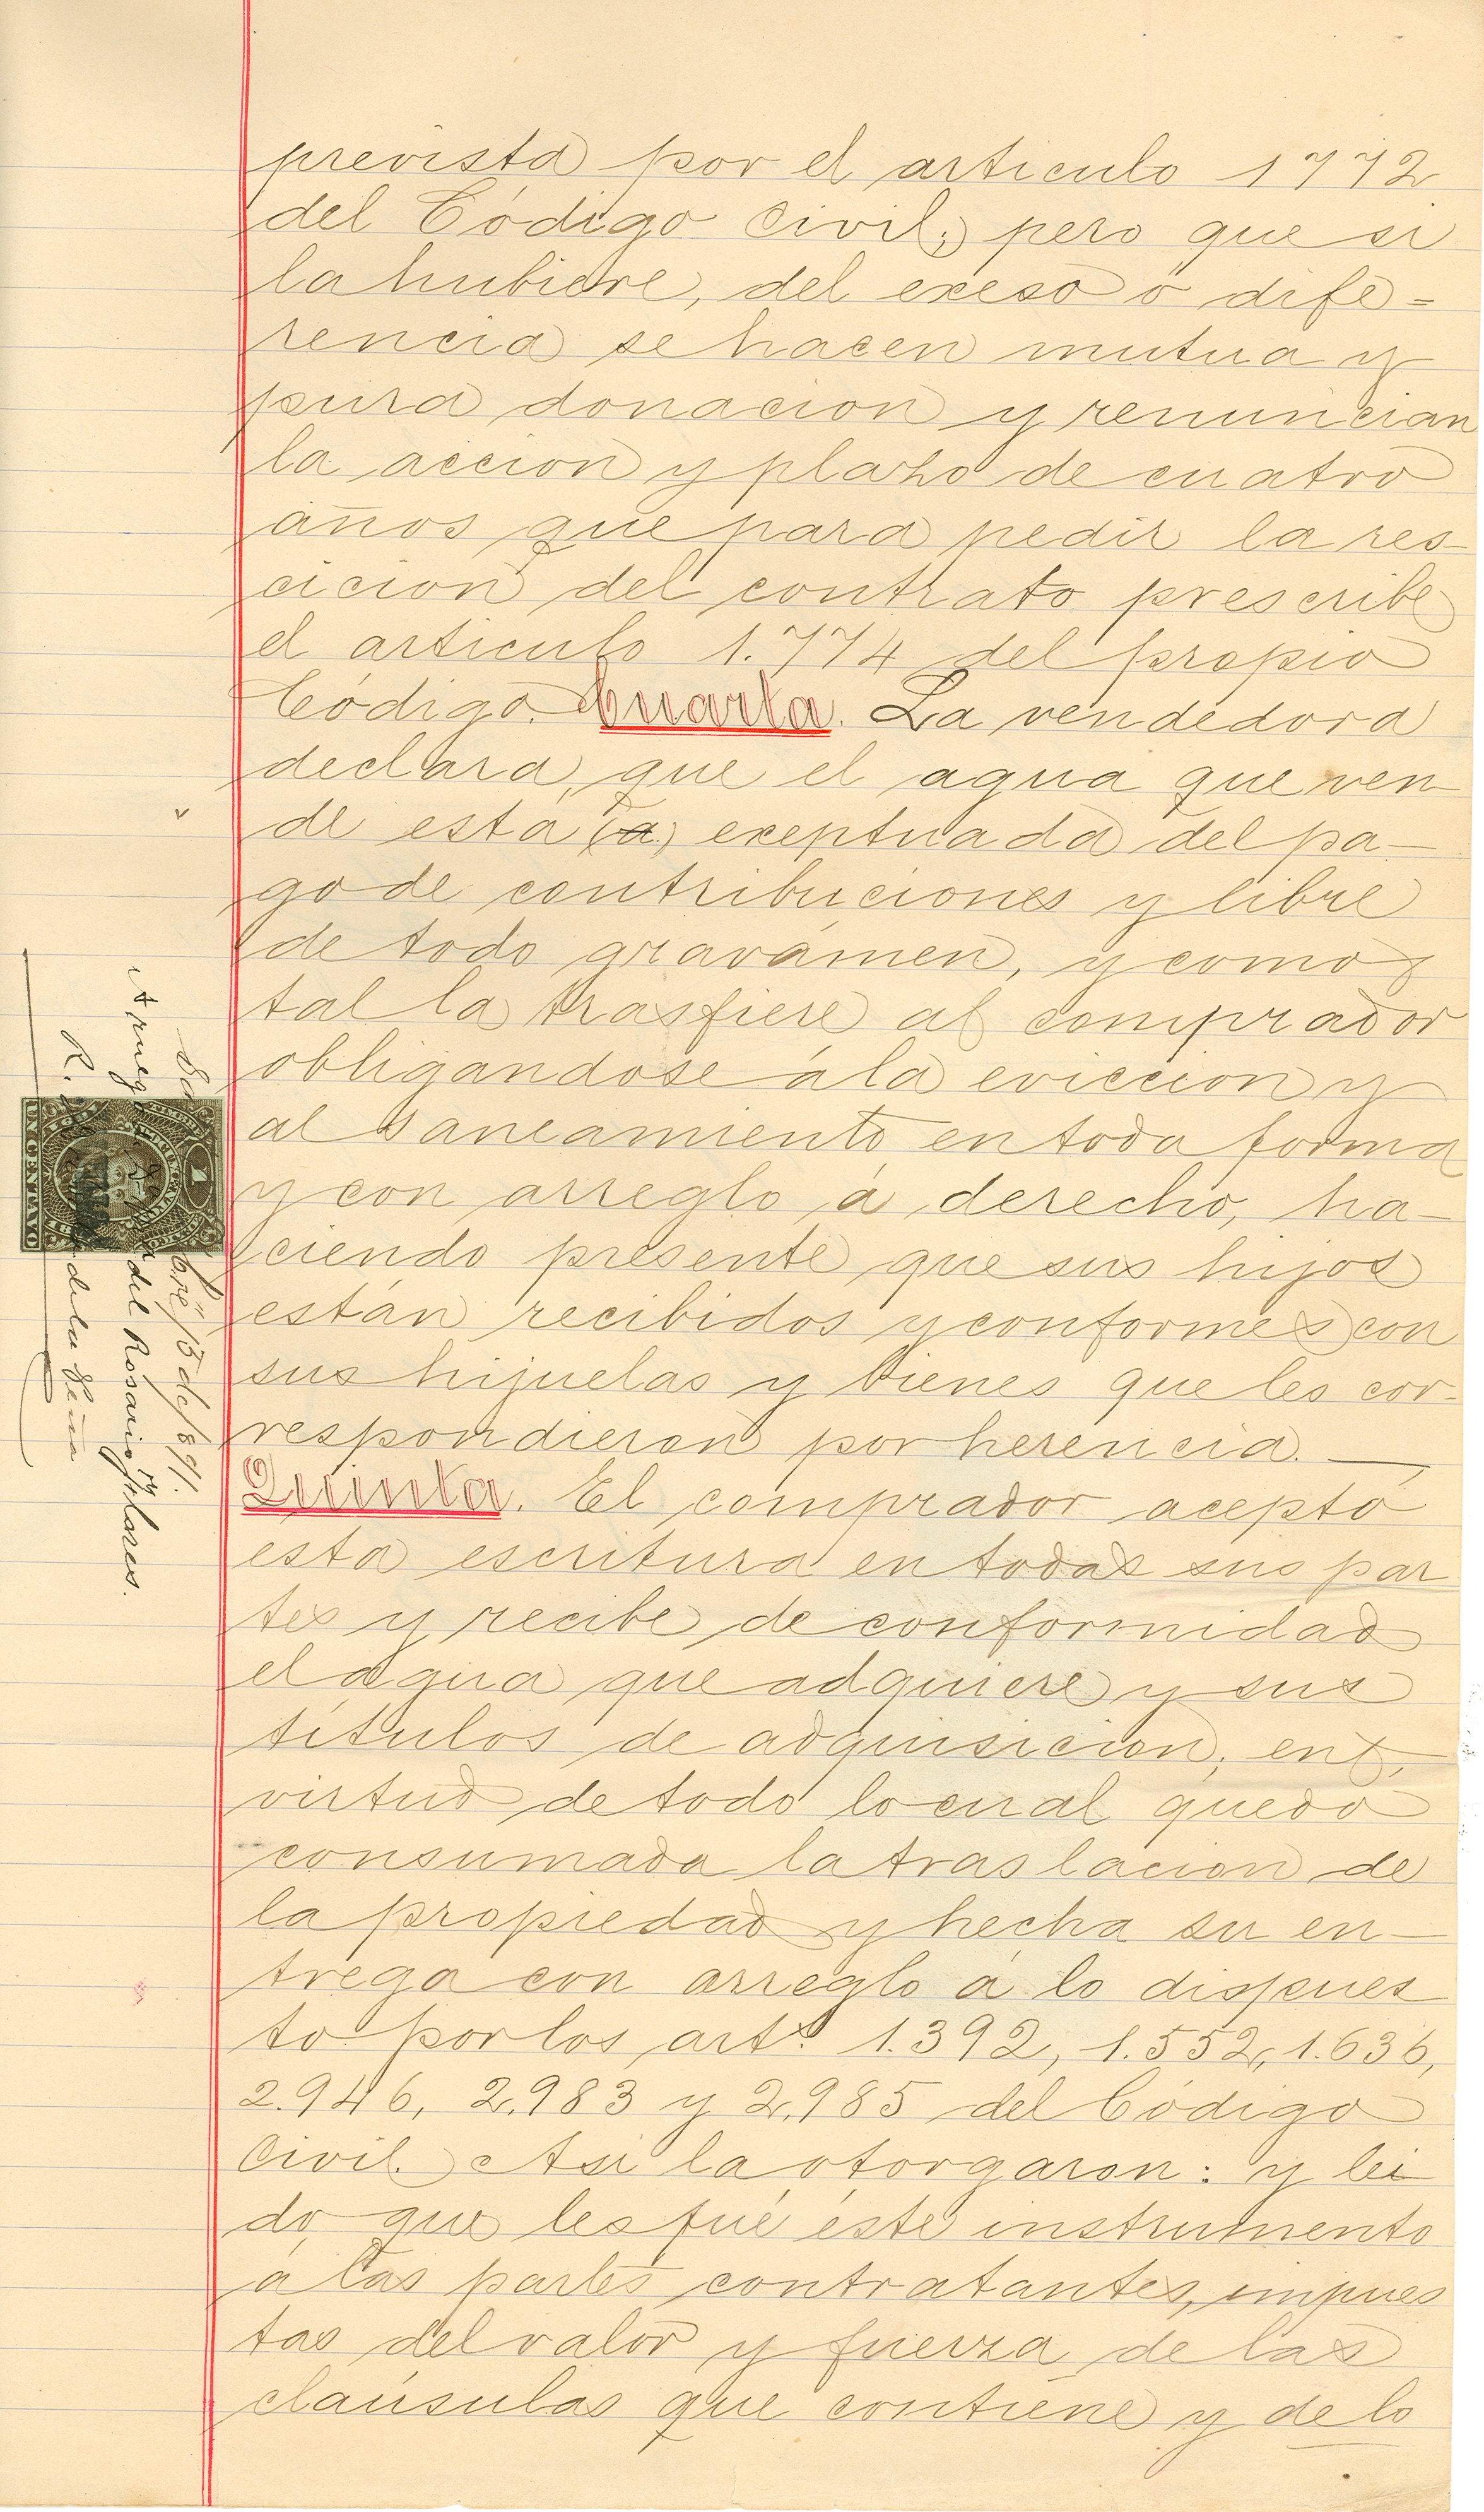 prevista por el articulo 1772
del Código Civil; pero que si
la hubiere, del exeso ó dife=
rencia se hacen mutua y
pura donacion y renuncian
la accion y plazo de cuatro
años que para pedir la res-
cicion del contrato prescribe
el articulo 1.774 del propio
Código. Cuarta. La vendedora
declara, que el agua que ven-
de está (a) exeptuada del pa-
go de contribuciones y libre
de todo gravámen, y como
tal la trasfiere al comprador
obligandose á la eviccion y
al saneamiento en toda forma
y con arreglo á derecho, ha-
ciendo presente que sus hijos
están recibidos y conformes con
sus hijuelas y bienes que les cor-
respondieron por herencia.
Quinta. El comprador aceptó
esta escritura en todas sus par
tes y recibe de conformidad
el agua que adquiere y sus
títulos de adquisicion, en
virtud de todo lo cual quedó
consumada la traslacion de
la propiedad y hecha su en-
trega con arreglo á lo dispues
to por los arts. 1.392, 1.552, 1.636,
2.946, 2.983 y 2.985 del Código
Civil. Asi la otorgaron: y lei
do que les fué éste instrumento
á las partes contratantes, impues
tas del valor y fuerza de las
claúsulas que contiene y de lo
bre 15 de 1891.
A ruego
del Rosario Flores.
R.
de la Peña
UN CENTAVO
1